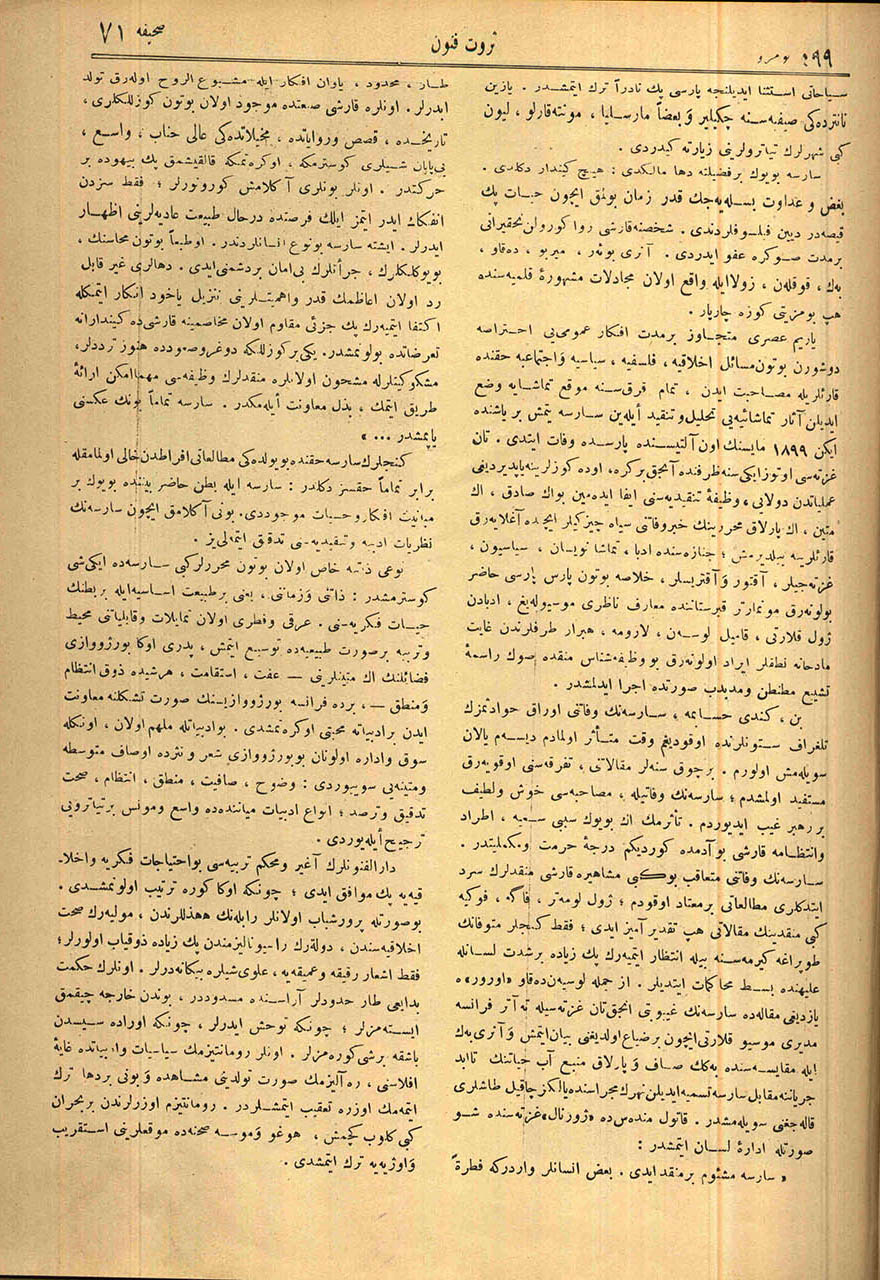 نومرو ٤٩٩
ثروت فنون
صحیفه ٧١
سیاحاتی استثنا ایدیلنجه پارسی پك نادراً ترك ایتمشدر . یازین
نانترده‌كی صیفیه‌سنه چكیلیر وَبعضاً مارسلیا ، مونته‌قارلو ، لیون
كبی شهرلرك تیاترولرینی زیارته كیدردی .
سارسه بویوك برفضیلته دها مالكدی : هیچ كیندار دكلدی .
بغض و عداوت بسله‌یه‌جك قدر زمان بولمق ایچون حیات پك
قیصه‌در دیین فیلسوفلردندی . شخصنه قارشی روا كورولن تحقیراتی
برمدت صوكره عفو ایدردی . آنری بوئه‌ر ، میربو ، ده‌قاو ،
به‌ك ، فوقلەن ، زولاایله واقع اولان مجادلات مشهورهٔ قلمیه‌سنده
هپ بومزیتی كوزه چارپار .
یاریم عصری متجاوز برمدت افكار عمومی‌یی احتراصه
دوشورن بوتون‌مسائل اخلاقیه ، فلسفیه ، سیاسیه وَاجتماعیه حقنده
قارئلریله مصاحبت ایدن ، تمام قرق‌سنه موقع تماشایه وضع
ایدیلن آثار تماشائیه‌یی تحلیل‌وتنقید أیله‌ین سارسه یتمش بر یاشنده
ایكن ١٨٩٩ مایسنك اون‌آلتیسنده پارسده وفات ایتدی . تان
غزته‌سی اوتوزایكی‌سنه ظرفنده آنجق‌بركره، اوده كوزلرینه‌یاپدیردیغی
عملیاتدن دولایی ، وظیفهٔ تنقیدیه‌سنی ایفا ایده‌مین بواك صادق ، اك
متین ، اك پارلاق محررینك خبروفاتی سیاه چیزكیلر ایچنده آغلایه‌رق
قارئلرینه بیلدیرمش ؛ جنازه‌سنده ادبا ، تماشا نویسان ، سیاسیون ،
غزته‌جیلر ، آقتور وَآقتریسلر ، خلاصه بوتون پارس پارسی حاضر
بولونه‌رق مونمارتر قبرستاننده معارف ناظری موسیوله‌یغ ، ادبادن
ژول قلارتی ، قامیل لوسه‌ن ، لارومه ، هربار طرفلرندن غایت
مادحانه نطقلر ایراد اولونه‌رق بو وظیفه‌شناس منقده صوك راسمهٔ
تشییع مطنطن ومدبدب صورتده اجرا ایدلمشدر .
بن ، كندی حسابمه ، سارسه‌نك وفاتنی اوراق حوادثمزك
تلغراف ستونلرنده اوقودیغم وقت متأثر اولمادم دیسه‌م یالان
سویله‌مش اولورم . برچوق سنه‌لر مقالاتی ، تفرقه‌سنی اوقویه‌رق
مستفید اولمشدم ؛ سارسه‌نك وفاتیله ، مصاحبه‌سی خوش ولطیف
بر رهبر غیب ایدیوردم . تأثرمك اك بویوك سببی سعیه ، اطراد
وانتظامه قارشی بوآدمده كوردیكم درجهٔ حرمت ومكملیتدر .
سارسه‌نك وفاتنی متعاقب بوكبی مشاهیره قارشی منقدلرك سرد
ایتدكلری مطالعاتی برمعتاد اوقودم ؛ ژول لومه‌تر ، فاگه ، فوكیه
كبی منقدینك مقالاتی هپ تقدیر آمیز ایدی ؛ فقط كنجلر متوفانك
طوپراغه كیرمه‌سنه بیله انتظار ایتمیه‌رك پك زیاده برشدت لسانله
علیهنده بسط محاكمات ایتدیلر . از جمله لوسیه‌ن‌ده‌قاو «اورور»ه
یازدیغی مقاله‌ده سارسه‌نك غیبوبتی انجق‌تان غزته‌سیله ته‌آتر فرانسه
مدیری موسیو قلارتی‌ایچون برضیاع اولدیغنی بیان‌ایتمش وَآنری‌به‌ك
ایله مقایسه‌سنده به‌كك صاف وَپارلاق منبع آب حیاتنك تاابد
جریاننه‌مقابل سارسه تسمیه‌ایدیلن نهرك مجراسنده یالكز چاقیل طاشلری
قاله جغنی سویله‌مشدر . قاتول منده‌س‌ده «ژورنال» غزته‌سنده شو
صورتله ادارهٔ لسان ایتمشدر :
« سارسه مشئوم برمنقد ایدی . بعض انسانلر واردركه فطرةً
طار ، محدود ، یاوان افكار ایله مشبوع الروح اوله‌رق تولد
ایدرلر . اونلره قارشی صنعتده موجود اولان بوتون كوزللكلری ،
تاریخده ، قصص وروایاتده ، مخیلاتده‌كی عالی جناب ، واسع ،
بی‌پایان شیلری كوسترمكه ، اوكره‌تمكه قالقیشمق پك بیهوده بر
حركتدر . اونلر بونلری آكلامش كورونورلر ؛ فقط سزدن
انفكاك ایدر ایتمز ایلك فرصتده درحال طبیعت عادیه‌لرینی اظهار
ایدرلر . ایشته سارسه بونوع انسانلردندر . اوطبعاً بوتون محاسنك ،
بویوكلكلرك ، جرأتلرك بی‌امان بردشمنی‌ایدی . دهالری غیر قابل
رد اولان اعاظمك قدر واهمیتلرینی تنزیل یاخود انكار ایتمكله
اكتفا ایتمیه‌رك پك جزئی مقاوم اولان مخاصمینه قارشی‌ده كیندارانه
تعرضاتده بولونمشدر. یكی‌بركوزللكه دوغروصعودده هنوز ترددلر،
مشكوكیتلرله مشحون اولانلره منقدلرك وظیفه‌سی مهماامكن ارائهٔ
طریق ایتمك ، بذل معاونت أیله‌مكدر . سارسه تماماً بونك عكسنی
یاپمشدر ... »
كنجلرك سارسه حقنده بویولده‌كی مطالعاتی افراطدن خالی اولمامقله
برابر تماماً حقسز دكلدر : سارسه ایله بطن حاضر بیننده بویوك بر
مباینت افكاروحسیات موجوددی. بونی آكلامق ایچون سارسه‌نك
نظریات ادبیه وتنقیدیه‌سنی تدقیق ایتمه‌لی‌یز .
نوعی ذاتنه خاص اولان بوتون محررلركبی سارسه‌ده ایكی‌شی
كوسترمشدر : ذاتنی وَزماننی ، یعنی برطبیعت اساسیه‌ایله بربطنك
حیات فكریه‌سنی . عرقی وفطری اولان تمایلات وقابلیاتنی محیط
وتربیه برصورت طبیعیه‌ده توسیع ایتمش ، پدری اوكا بورژووازی
فضائلنك اك متینلرینی — عفت ، استقامت ، هرشیده ذوق‌انتظام
وَمنطق — ، برده فرانسه بورژووازیسنك صورت تشكلنه معاونت
ایدن برادبیاته محبتی اوكره‌تمشدی . بوادبیاتله ملهم اولان ، اونكله
سوق واداره اولونان بوبورژووازی شعر ونثرده اوصاف متوسطه
ومتینه‌یی سویییوردی : وضوح ، صافیت ، منطق ، انتظام ، صحت
تدقیق وترصد ؛ انواع ادبیات میاننده‌ده واسع ومونس برتیاترویی
ترجیح أیله‌یوردی .
دارالفنونلرك آغیر ومحكم تربیه‌سی بواحتیاجات فكریه واخلا-
قیه‌یه پك موافق ایدی ؛ چونكه اوكا كوره ترتیب اولونمشدی .
بوصورتله پرورشیاب اولانلر رابله‌نك هزللرندن ، مولیه‌رك صحت
اخلاقیه‌سندن ، دولته‌رك راسیونالیزمندن پك زیاده ذوقیاب اولورلر؛
فقط اشعار رقیقه وعمیقه‌یه ، علوی شیلره بیكانه‌درلر . اونلرك حكمت
بدایعی طار حدودلر آراسنده مسدوددر ، بوندن خارجه چیقمق
ایسته‌مزلر ؛ چونكه توحش ایدرلر ، چونكه اوراده سیسدن
باشقه برشی كوره‌مزلر . اونلر رومانتیزمك سیاسیات وادبیاتده غایهٔ
افلاسنی ، ره‌آلیزمك صورت تولدینی مشاهده وَبونی بردها ترك
ایتمه‌مك اوزره تعقیب ایتمشلردر . رومانتیزم اوزرلرندن بربحران
كبی كلوب كچمش ، هوغو وَموسه صحنه‌ده موقعلرینی استقریب
وَاوژیه‌یه ترك ایتمشدی .